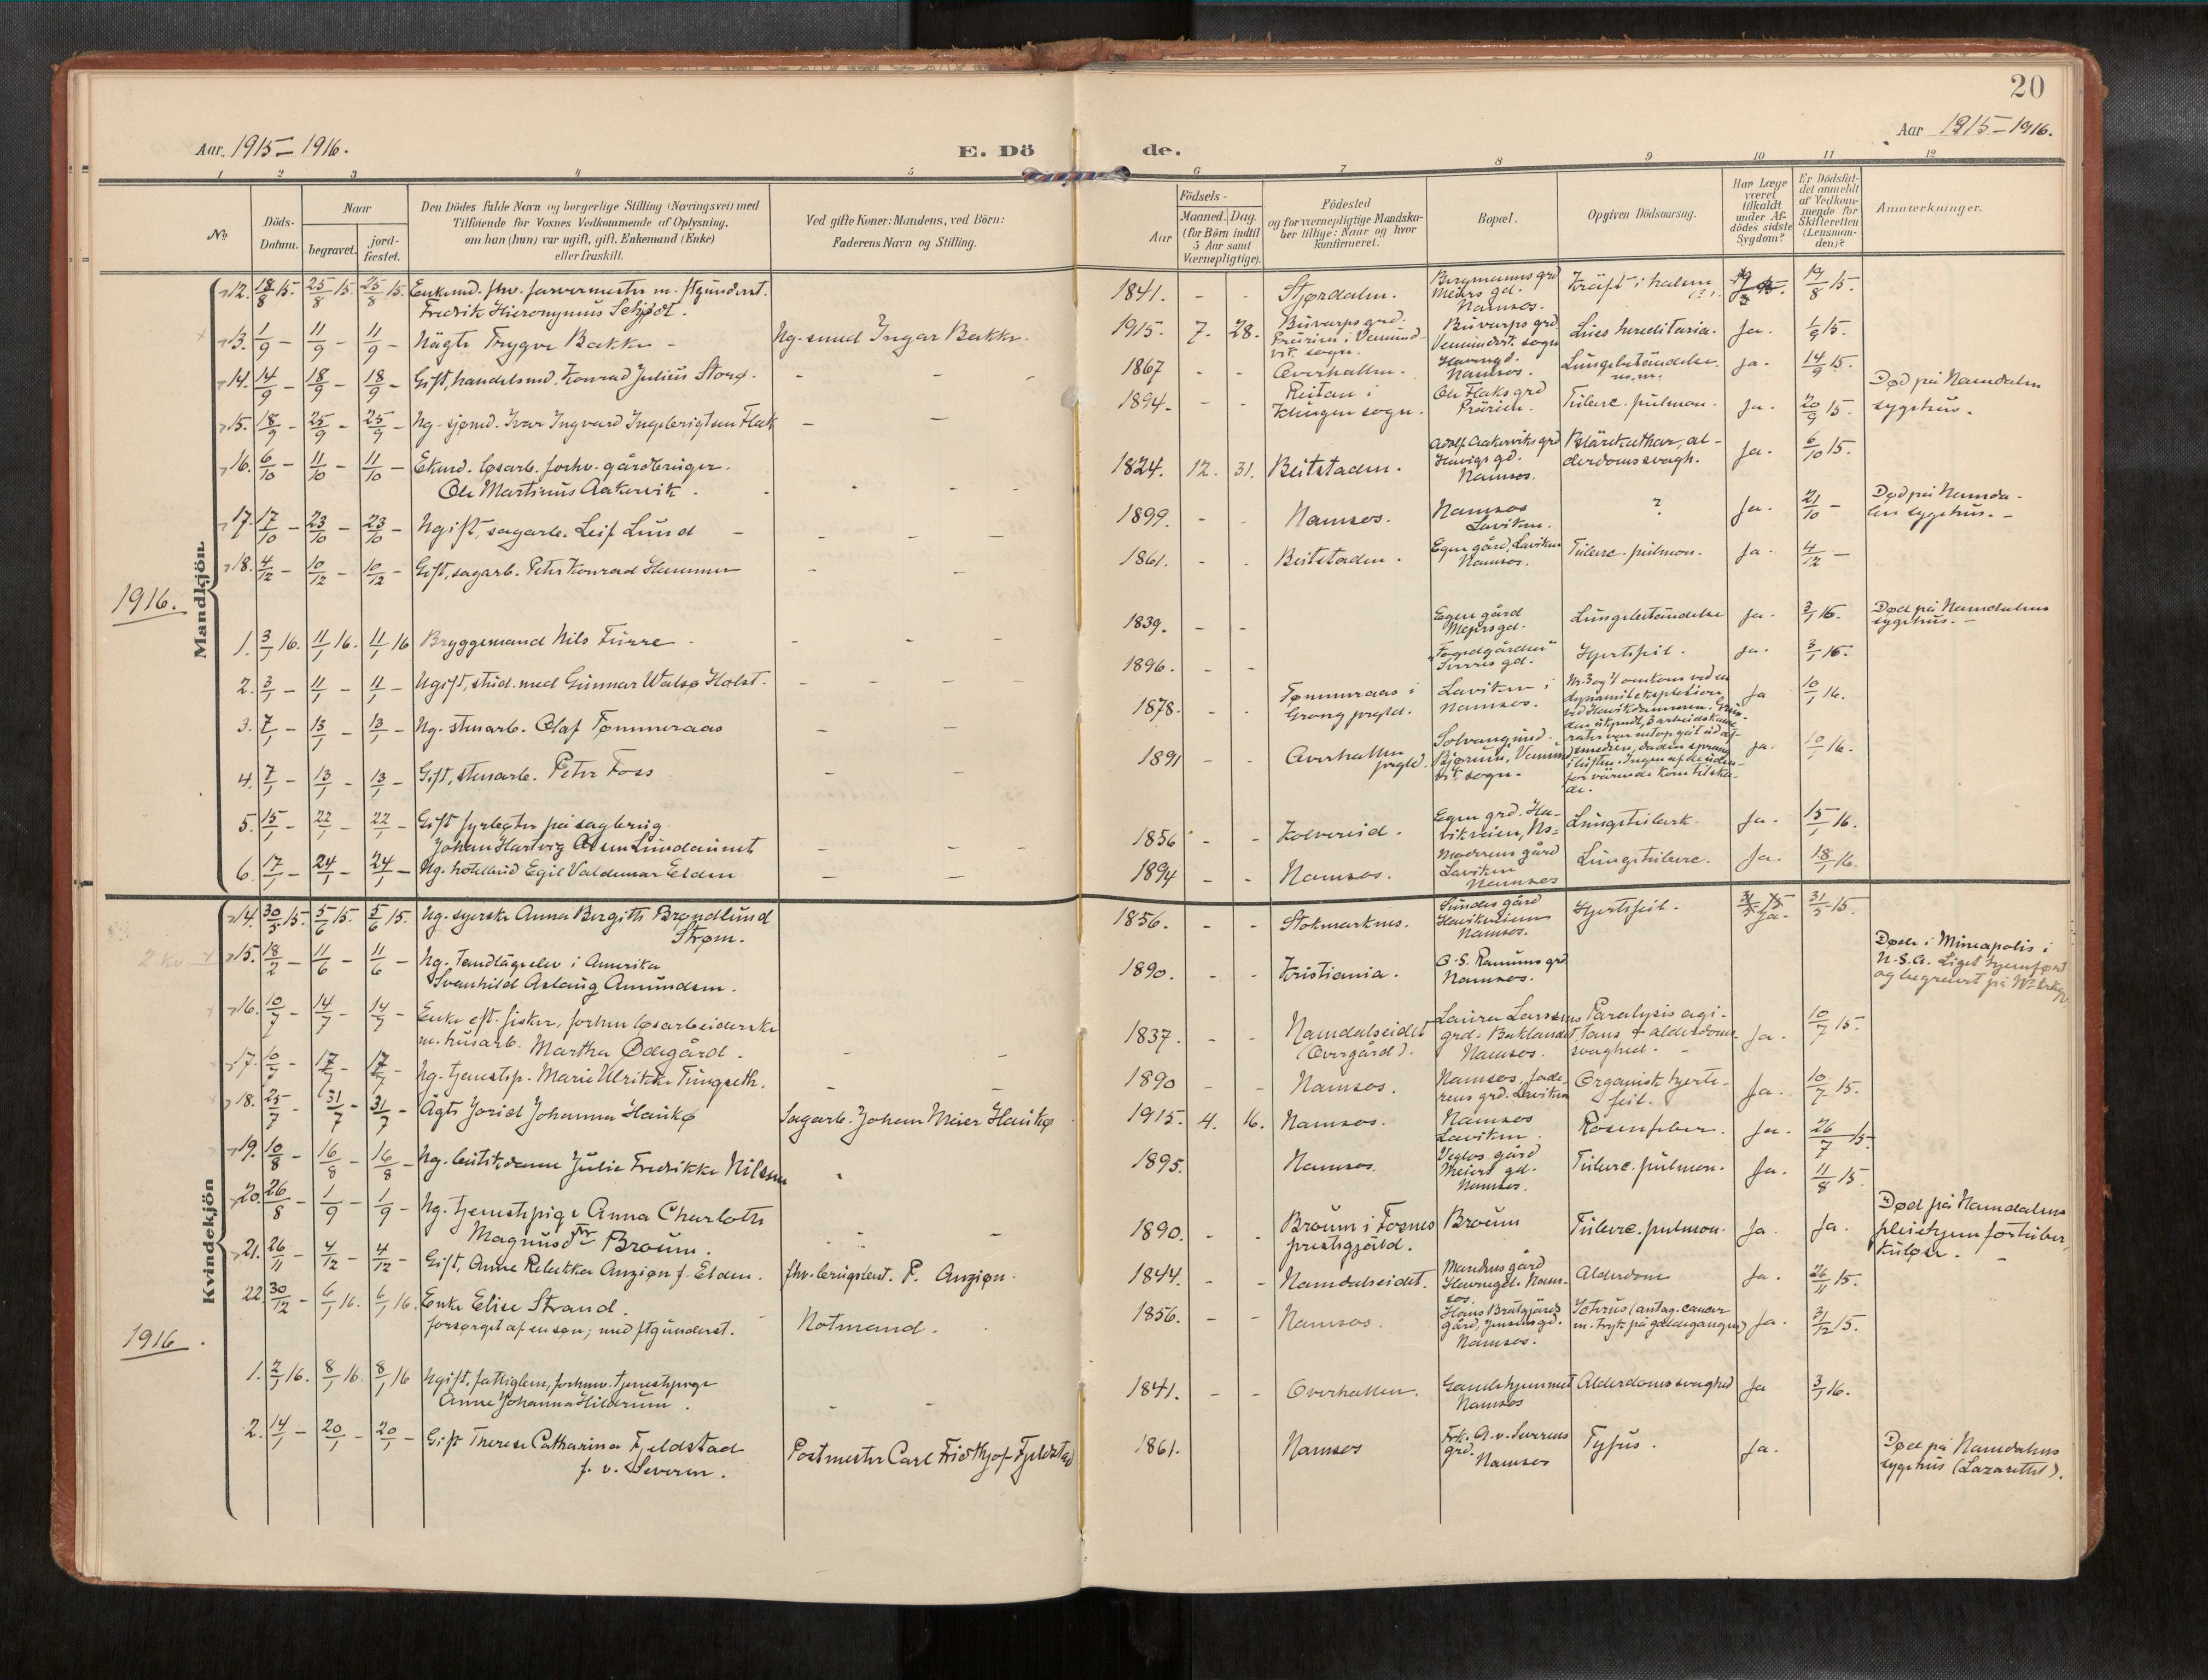 20
Aar 1915–1916.
E. Dö de.
Aar 1915–1916.
1 2 3 4 5 6 7 8 9 10 11 12
No
Döds-Datum.
Naar
begravet.
jord-fæstet.
Den Dödes fulde Navn og borgerlige Stilling (Næringsvei) med
Tilföiende for Voxnes Vedkommende af Oplysning,
om han (hun) var ugift, gift, Enkemand (Enke)
eller fraskilt.
Ved gifte Koner: Mandens, ved Börn:
Faderens Navn og Stilling.
Födsels-
Aar
Maaned. Dag.
(for Börn indtil
5 Aar samt
Værnepligtige).
Födested
og for værnepligtige Mandska-
ber tillige: Naar og hvor
konfirmeret.
Bopæl.
Opgiven Dödsaarsag.
Har Læge
været
tilkaldt
under Af-
dödes sidste
Sygdom?
Er Dödsfal-
det anmeldt
af Vedkom-
mende for
Skifteretten
(Lensman-
den)?
Anmærkninger.
Mandkjön.
12. 18/8 15. 25/8 15. 25/8 15. Enkemd. fhv. farvermester m. ftgunderst.
Fredrik Hieronymus Schjødt.
1841. - - Stjørdalen. Bergmanns grd
Meiers gd.
Namsos. Kræft i halsen (?). 19/8 15.
13. 1/9 – 11/9 – 11/9 – Uægte Trygve Bakken – Ug. smed Ingar Bakken. 1915. 7. 28. Buvarps grd. Prærien i Vemund-
vik sogn. Buvarps grd
Vemundvik sogn Lues hereditaria. Ja. 1/9 15.
14. 14/9 – 18/9 – 18/9 – Gift, handelsmd. Konrad Julius Storø. - - 1867 - - Overhallen. Havnegd.
Namsos. Lungebetændelse
m.m. Ja. 14/9 15.
15. 18/9 – 25/9 – 25/9 – Ug. sjømd. Ivar Ingvard Ingebrigtsen Flak – – 1894. - - Reitan i
Klingen sogn. Ole Flaks grd
Prærien. Tuberc. pulmon. Ja. 20/9 15. Død på Namdalens
sygehus.
16. 6/10 – 11/10 – 11/10 – Ekmd. løsarb. forhv. gårdbruger.
Ole Martinus Aakervik. 1824. 12. 31. Beitstaden. Adolf Aakerviks grd
Havnegd.
Namsos. Blærekatharr, al-
derdomssvagh. Ja. 6/10 15.
17. 17/10 – 23/10 – 23/10 – Ugift, sagarb. Leif Lund – – – 1899. - - Namsos. Namsos
Laviken. ? Ja. 21/10 – Død på Namda-
len sygehus. –
18. 4/12 – 10/12 – 10/12 – Gift, sagarb. Peter Konrad Hammer – – 1861. - - Beitstaden. Egen gård, Laviken
Namsos. Tuberc. pulmon. Ja. 4/12 –
1916.
1. 3/1 16. 11/1 16. 11/1 16 Bryggemand Nils Furre – – – 1839. - - Egen gård
Meiers gd. Lungebetændelse Ja. 3/1 16. Død på Namdalens
sygehus. –
2. 3/1 – 11/1 – 11/1 – Ugift, stud. med Gunnar Walsø Holst. – – – 1896. - - "Fogedgården"
gd. Hjertefeil. Ja. 3/1 16.
3. 7/1 – 13/1 – 13/1 – Ug. stenarb. Olaf Tømmeraas – – 1878. - - Tømmeraas i
Grong prgjld. Laviken i
Namsos. Nr. 3 og 4 omkom ved en
dynamiteksplosion
ved Havikdammen. Ja 10/1 16.
4. 7/1 – 13/1 – 13/1 – Gift, stenarb. Peter Foss – – 1891 - - Overhallen
prgjld. Bjørum, Vemund-
vik sogn. Ja. 10/1 16.
5. 15/1 – 22/1 – 22/1 – Gift fyrbøter på sagbrug
Johan Hartvig Olsen Lundaunet – – – 1856 - - Kolvereid. Egen grd. Ha-
vikveien, Ns: Lungetuberk. Ja. 15/1 16.
6. 17/1 – 24/1 – 24/1 – Ug. hotelbud Egil Valdemar Elden – – 1894 - - Namsos. Moderens gård
Laviken
Namsos Lungetuberc. Ja. 18/1 16.
Kvindekjön
14. 30/5 15. 5/6 15. 5/6 15. Ug. syerske Anna Bergithe Brøndlund
Strøm. 1856. - - Stokmarknes. Sundes gård
Havikveien
Namsos. Hjertefeil. Ja. 31/5 15.
2 kv
15. 18/2 – 11/6 – 11/6 – Ug. Tandlægeelev i Amerika
Svanhild Aslaug Amundsen. 1890. - - Kristiania. O. S. Ranums grd
Namsos. Døde i Mineapolis i
U.S.A. Liget hjemført
og begravet på Ns. kirkegd.
16. 10/7 – 14/7 – 14/7 – Enke eft. fisker, forhen løsarbeiderske
m. husarb. Martha Ødegård. – – 1837. - - Namdalseidet
(Overgård). Laura Larsens
grd. Baklandet
Namsos. Paralysis agi-
tans + alderdoms-
svaghed. – Ja. 10/7 15.
17. 10/7 – 17/7 – 17/7 – Ug. tjenestep. Marie Ulrikke Tungseth. – – 1890 – – Namsos. Namsos, fade-
rens grd. Laviken Organisk hjerte-
feil. Ja. 10/7 15.
18. 25/7 – 31/7 – 31/7 – Ægte Jorid Johanna Haukø Sagarb. Johan Meier Haukø 1915. 4. 16. Namsos. Namsos
Laviken. Rosenfeber. Ja. 26/7 15.
19. 10/8 – 16/8 – 16/8 – Ug. butikdame Julie Fredrikke Nilsen 1895. Namsos. Veglos gård
Meiers gd.
Namsos. Tuberc. pulmon. Ja. 11/8 15.
20. 26/8 – 1/9 – 1/9 – Ug. tjenestepige Anna Charlotte
Magnusdtr Broum. – – 1890. - - Broum i Fosnes
prestegjæld. Broum Tuberc. pulmon. Ja. Ja. Død på Namdalens
pleiehjem for tuber-
kuløse. –
21. 26/11 – 4/12 – 4/12 – Gift, Anne Rebekka Anzjøn f. Elden. fhv. brugsbest. P. Anzjøn. 1844. - - Namdalseidet. gård
Havnegd. Nam-
sos. Alderdom Ja. 26/11 15.
22. 30/12 – 6/1 16. 6/1 16. Enke Elise Strand.
forsørget af en søn; med ftgunderst. Notmand. 1856. - - Namsos. Hans Bråtgjærds
gård, Jensensgd.
Namsos. Icterus (antag. cancer
m. tryk på galdegangen) Ja. 31/12 15.
1916.
1. 2/1 16. 8/1 16. 8/1 16 Ugift, fattiglem, forhenv. tjenestepige
Anne Johanna Hilderum. – – 1841. - - Overhallen. Gamlehjemmet
Namsos Alderdomssvaghed Ja 3/1 16.
2. 14/1 – 20/1 – 20/1 – Gift Therese Catharina Fjeldstad
f. v. Severen. Postmester Carl Fridthjof Fjeldstad 1861. Namsos Frk. A. v. Severens
grd.
Namsos Tyfus. Ja. Død på Namdalens
sygehus (Lazarettet).